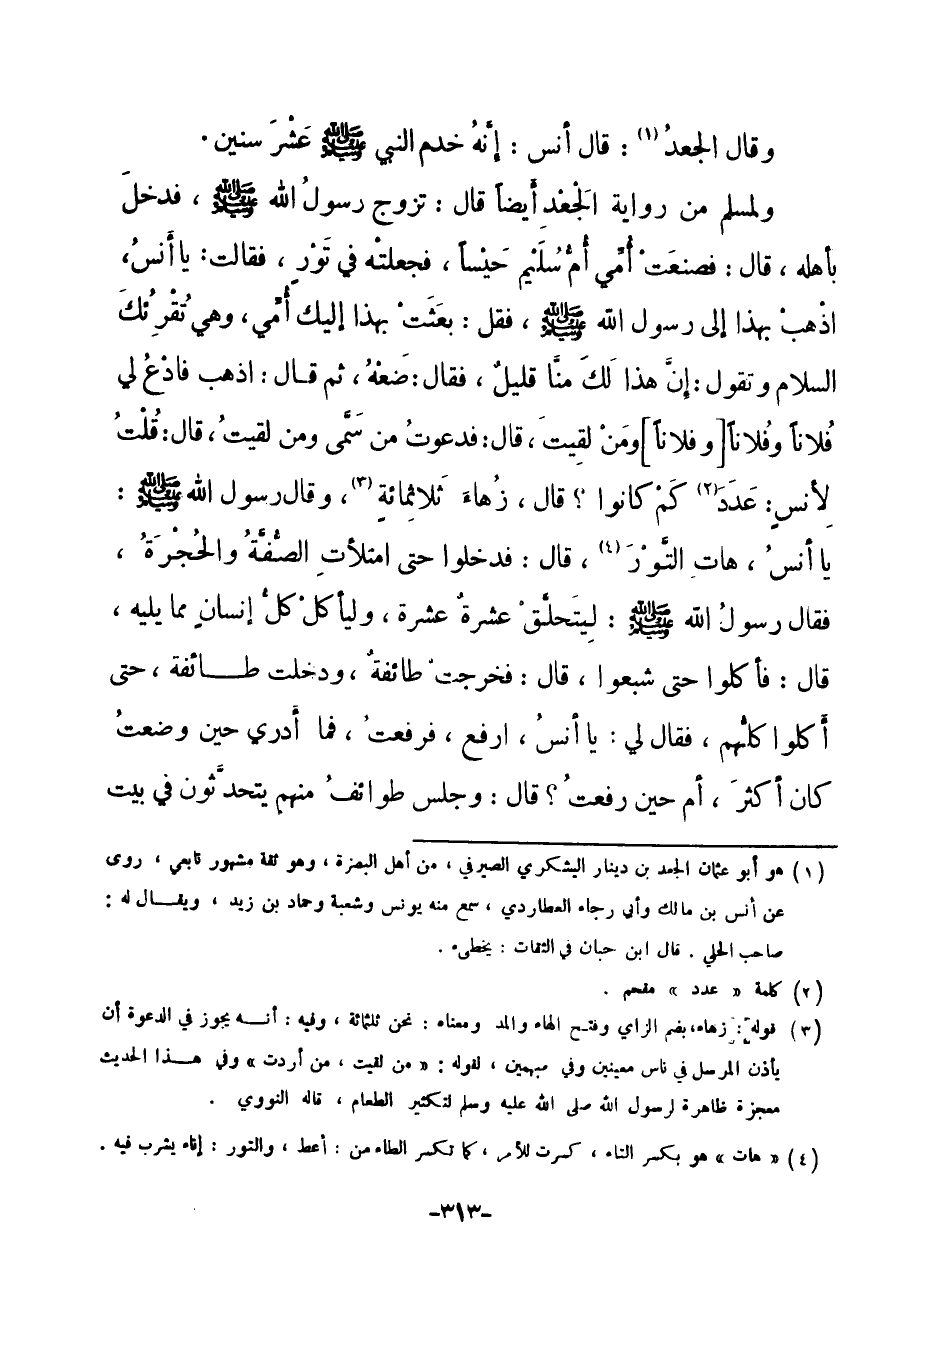 وقال الجعدُ(١) : قال أنس : إنَّهُ خدم النبي ﷺ عَشْرَ سنين .
ولمسلم من رواية الجَعْدِ أيضاً قال : تزوج رسولُ الله ﷺ ، فدخلَ
بأهله ، قال : فصنعَتْ أُمِّي أُمُّ سُلَيْمٍ حَيْساً ، فجعلتْه في تَوْرٍ ، فقالت : يا أنسُ،
اذْهبْ بهذا إلى رسول الله ﷺ ، فقل : بعَثَتْ بهذا إليك أُمِّي، وهي تُقْرِئكَ
السلام وتقول : إنَّ هذا لَكَ منَّا قليلٌ ، فقال : ضَعْهُ ، ثم قال : اذهب فادْعُ لي
فُلاناً وفُلاناً [وفلاناً] ومَنْ لقِيتَ ، قال : فدعوتُ من سَمَّى ومن لقيتُ ، قال : قُلْتُ
لأنسٍ : عَدَدَ(٢) كَمْ كانوا ؟ قال ، زُهاءَ ثلاثِمائةٍ(٣) ، وقال رسول الله ﷺ :
يا أنسُ ، هاتِ التَّوْرَ(٤) ، قال : فدخلوا حتى امتلأتِ الصُّفَّةُ والحُجْرَةُ ،
فقال رسولُ الله ﷺ : لِيَتَحلَّقْ عشرةٌ عشرة ، وليأكلْ كلُّ إنسانٍ مما يليه ،
قال : فأكلوا حتى شبعوا ، قال : فخرجتْ طائفةٌ ، ودخلت طائفة ، حتى
أَكلوا كلُّهم ، فقال لي : يا أنسُ ، ارفع ، فرفعتُ ، فما أَدري حين وضعتُ
كان أكثرَ ، أم حين رفعتُ ؟ قال : وجلس طوائفُ منهم يتحدَّثون في بيت
(١) هو أبو عثمان الجعد بن دينار اليشكري الصيرفي ، من أهل البصرة ، وهو ثقة مشهور تابعي ، روى
عن أنس بن مالك وأبي رجاء العطاردي ، سمع منه يونس وشعبة وحماد بن زيد ، ويقال له :
صاحب الحلي . قال ابن حبان في الثقات : يخطىء .
(٢) كلمة « عدد » مقحم .
(٣) قوله : زهاء، بضم الزاي وفتح الهاء والمد ومعناه : نحن ثلثمائة ، وفيه : أنه يجوز في الدعوة أن
يأذن المرسل في ناس معينين وفي مبهمين ، لقوله : « من لقيت ، من أردت » وفي هذا الحديث
معجزة ظاهرة لرسول الله صلى الله عليه وسلم لتكثير الطعام ، قاله النووي .
(٤) « هات » هو بكسر التاء ، كسرت للأمر ، كما تكسر الطاء من : أعط ، والتور : إناء يشرب فيه .
-٣١٣-